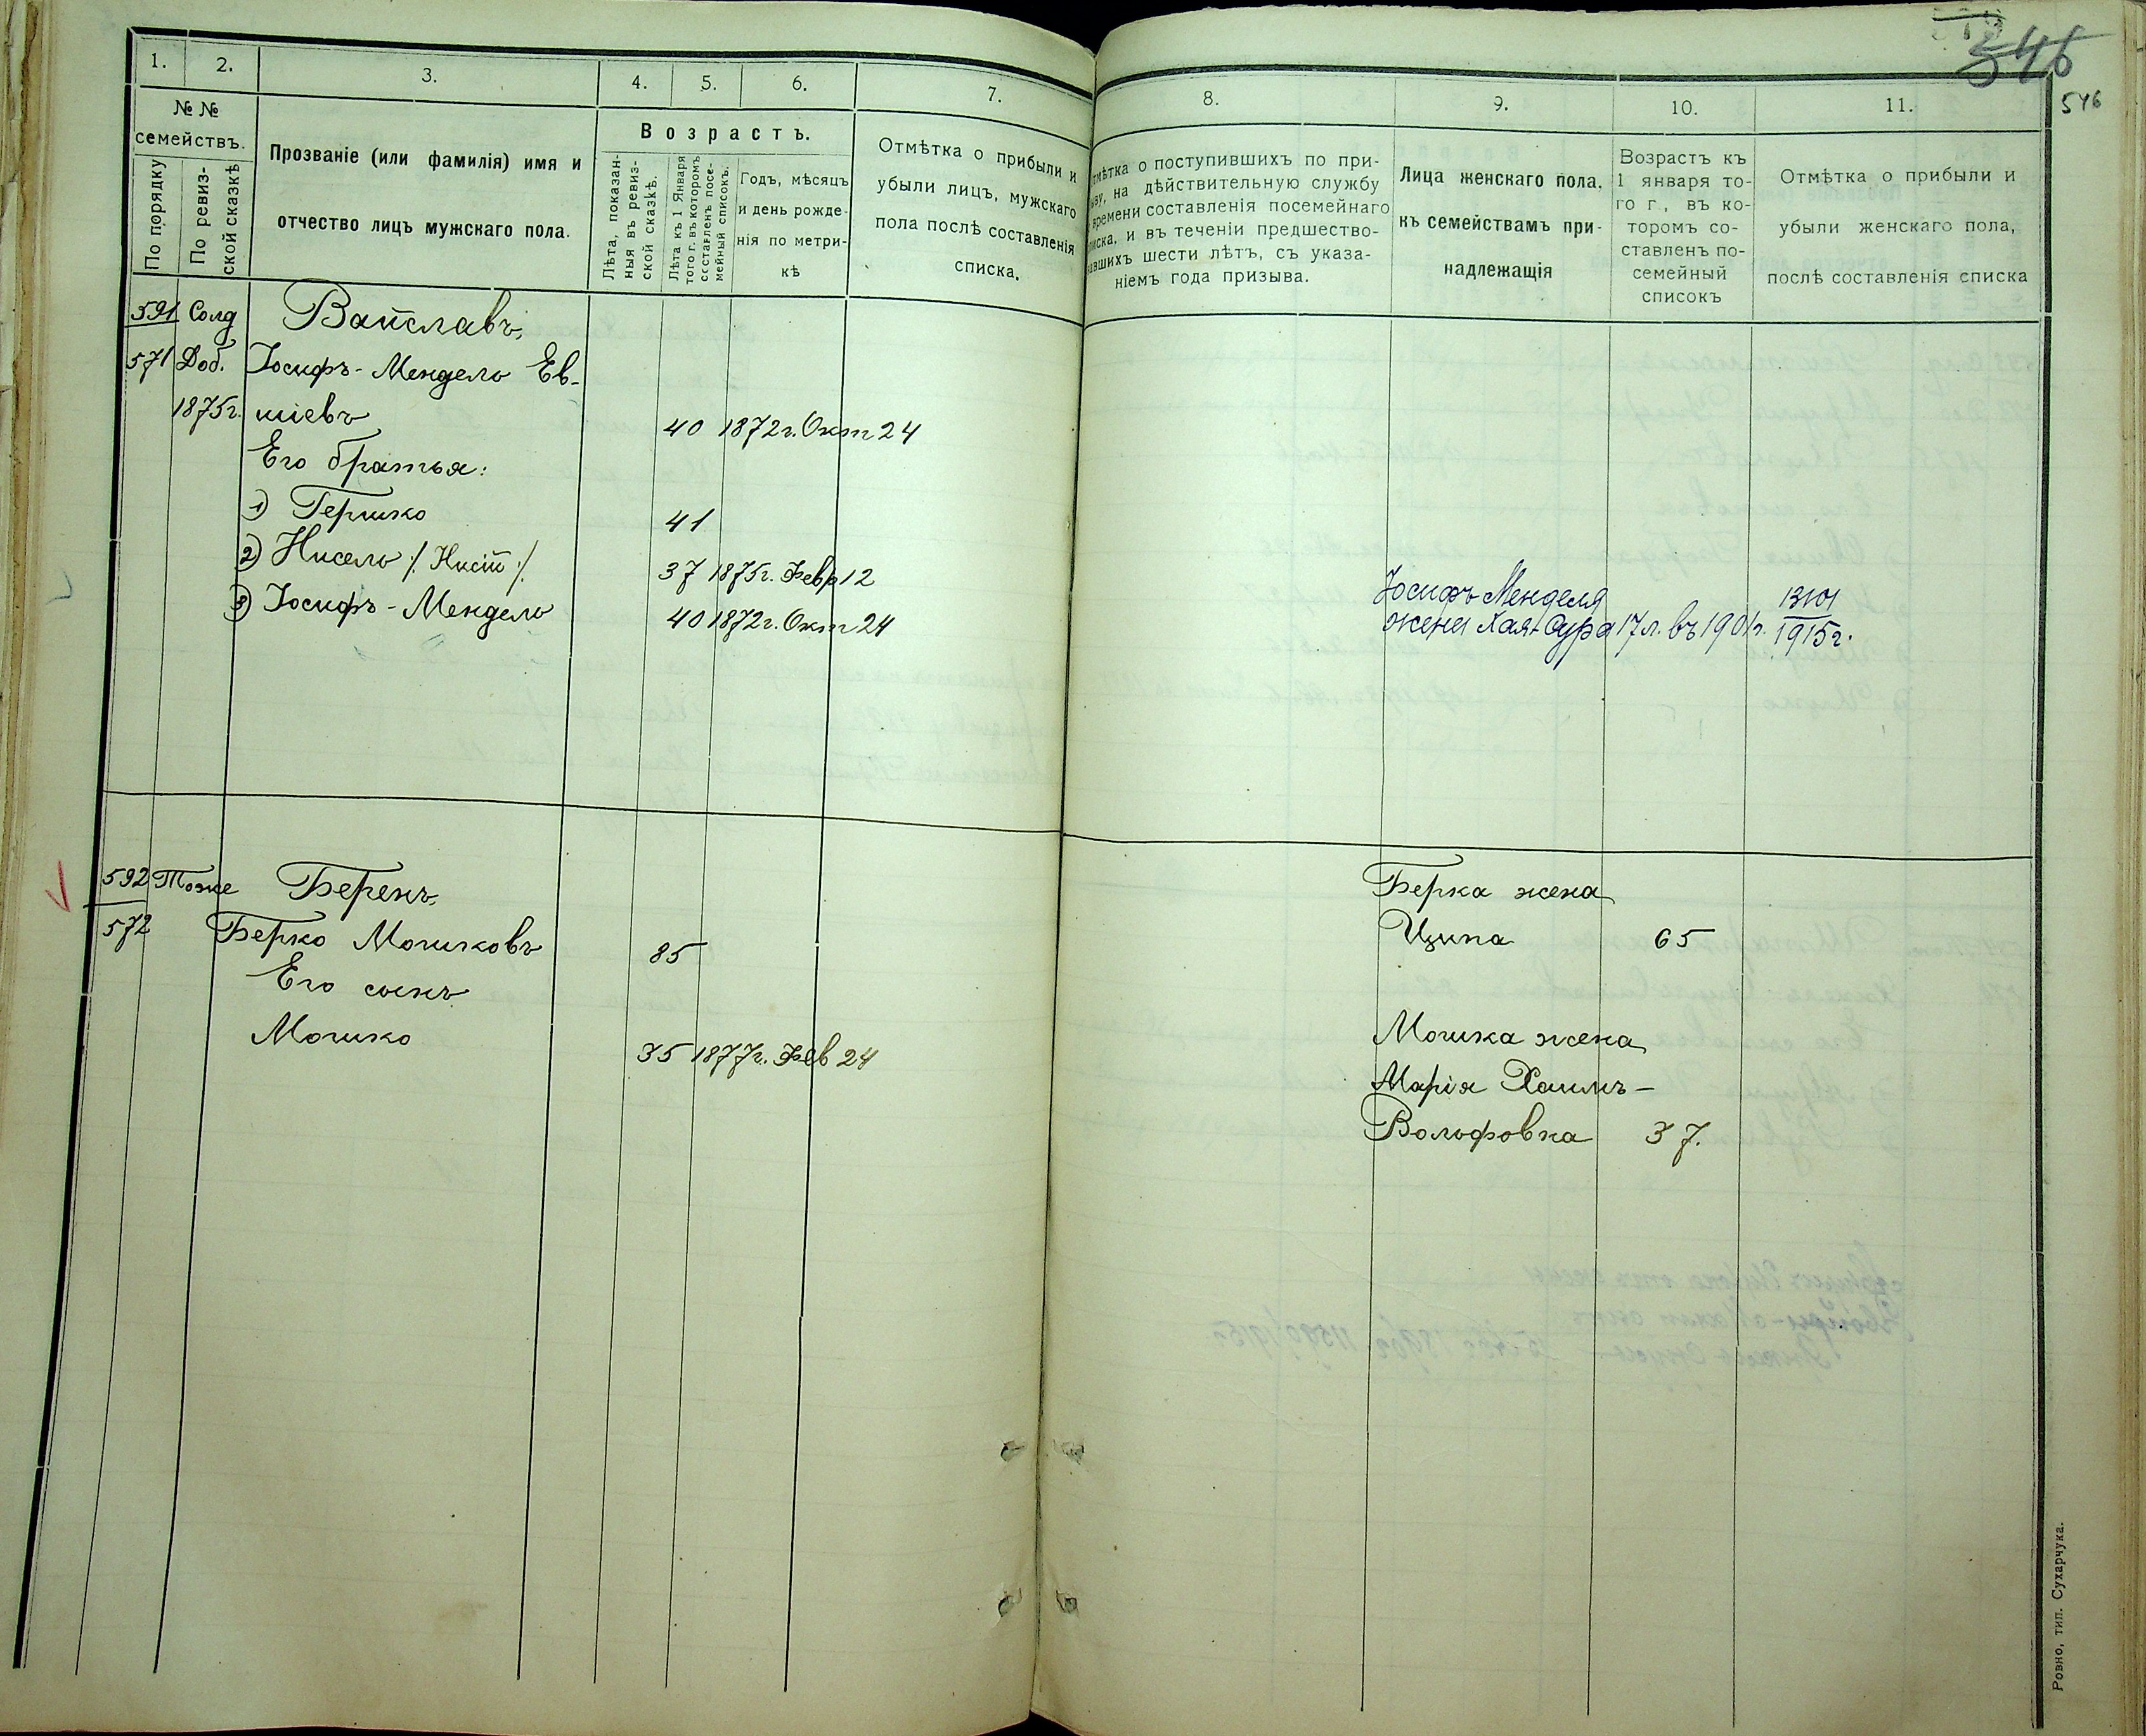 546
546
1. 2. 3. 4. 5. 6. 7.
№ №
семействъ.
По порядку
По ревиз-
ской сказкѣ
Прозваніе (или фамилія) имя и
отчество лицъ мужскаго пола.
Возрастъ.
Лѣта, показан-
ныя въ ревиз-
ской сказкѣ.
Лѣта къ 1 Января
того г. въ которомъ
составленъ посе-
мейный списокъ.
Годъ, мѣсяцъ
и день рожде-
нія по метри-
кѣ
Отмѣтка о прибыли и
убыли лицъ, мужскаго
пола послѣ составленія
списка.
591 Солд
571 Доб.
1875г.
Іосифъ-Мендель Ев-
шіевъ 40 1872г. Окт 24
Его братья:
1) Гершко 41
2) Нисель /. Нисій ./ 37 1875г. Февр 12
3) Іосифъ-Мендель 40 1872г. Окт 24
592 Тоже Беренъ
572 Берко Мошковъ 85
Его сынъ
Мошко 35 1877г. Фев 24
8. 9. 10. 11.
Отмѣтка о поступившихъ по при-
зыву, на дѣйствительную службу
времени составленія посемейнаго
списка, и въ теченіи предшество-
вавшихъ шести лѣтъ, съ указа-
ніемъ года призыва.
Лица женскаго пола,
къ семействамъ при-
надлежащія
Возрастъ къ
1 января то-
го г., въ ко-
торомъ со-
ставленъ по-
семейный
списокъ
Отмѣтка о прибыли и
убыли женскаго пола,
послѣ составленія списка
Іосифъ Менделя
жена Хая-Сура 17 л. въ 1901г. 1915г.
Берка жена
Ципа 65
Мошка жена
Марія Хаимъ-
Вольфовна 37.
Ровно, тип. Сухарчука.